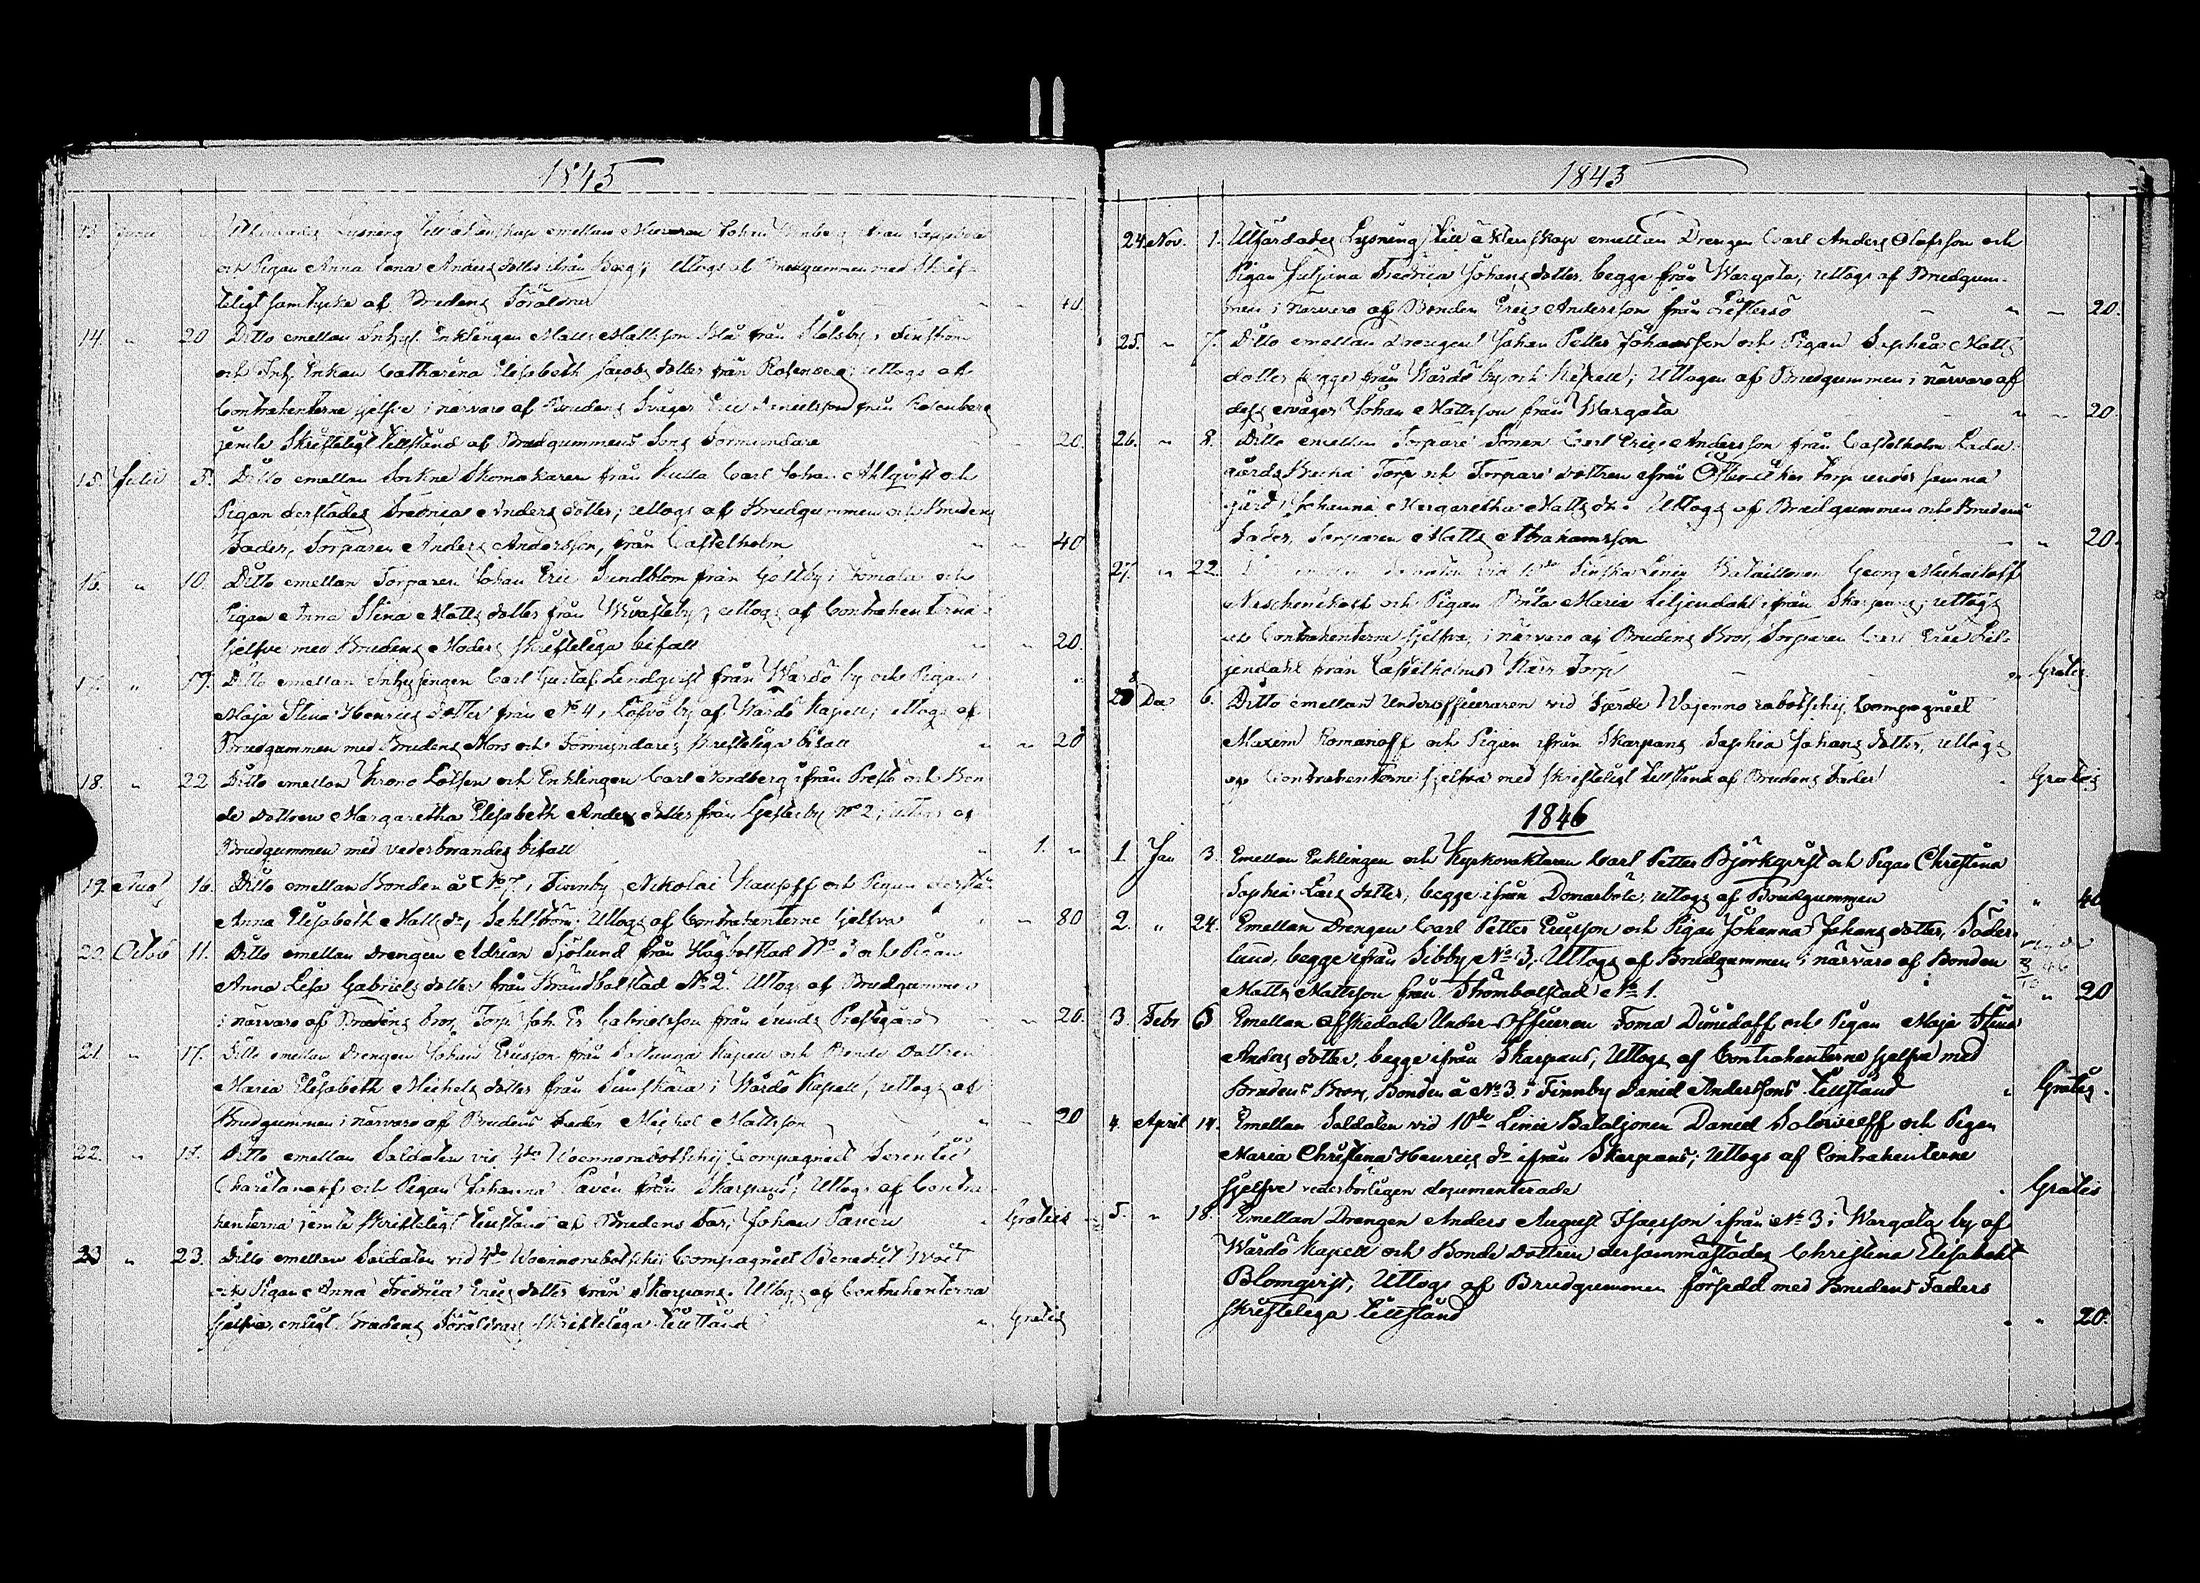 1845
13. Junii Utfärdades Lysning till äktenskap emellan Muraren Johan
och Pigan Anna Lena Anders dotter ifrån Borg; Uttogs af Brudgummen med Skrif-
teligt samtycke af Brudens Föräldrar " - 40
14. " 20 Ditto emellan Inhys. Enklingen Matts Mattsson Blå från Stålsby i Finström
och Inh. Enkan Catharina Elisabeth Jacobs dotter från Rosenberg; uttogs af
Contrahenterne sjelfve i närvaro af Brudens Svåger Eric Danielsson från Rosenberg
jemte Skrifteligt tillstånd af Brudgummens Sons Förmyndare - 20.
15 Julii 5. Ditto emellan Sockne Skomakaren från Kulla Carl Johan Ahlqvist och
Pigan derstädes Fredrica Anders dotter; uttogs af Brudgummen och Brudens
Fader, Torparen Anders Andersson, från Castelholm " - 40
16. " 10. Ditto emellan Torparen Johan Eric Sundblom från Gottby i Jomala och
Pigan Anna Stina Matts dotter från Hvasteby; uttogs af Contrahenterna
sjelfve med Brudens Moders skrifteliga bifall " " 20.
17. " 19. Ditto emellan Inhysingen Carl Gustaf Lindqvist från Wårdö by och Pigan
Maja Stina Henrics dotter från No 4 i Löfvö by af Wårdö Kapell; uttogs af
Brudgummen med Brudens Mors och Förmyndares skrifteliga bifall " " 20
18. " 22 Ditto emellan Krono Lotsen och Enklingen Carl Nordberg ifrån Prestö och Bon
de dottren Margaretha Elisabeth Anders dotter från Gesterby No 2; uttogs af
Brudgummen med vederbörandes bifall " 1. "
19. Aug 16. Ditto emellan Bonden å No 7 i Finnby Nikolai Kaupff och Pigan derstä.
Anna Elisabeth Matts dr, Sahlström; Uttogs af Contrahenterne sjelfva " - 80
20. Octob 11. Ditto emellan Drengen Adrian Sjölund från Högbolstad No 3 och Pigan
Anna Lisa Gabriels dotter från Strandbolstad No 2. Uttogs af Brudgummen
i närvaro af Brudens bror, Torp. Joh. Er. Gabrielsson från Sunds Prestgård - " 20.
21. " 17. Ditto emellan Drengen Johan Ericsson från Kapell och Bonde dottren
Maria Elisabeth Michels dotter från Simskäla i Wårdö Kapell; uttogs af
Brudgummen i närvaro af Brudens Fader Michel Mattsson " - 20
22. " 17. Ditto emellan Soldaten vid 4de Woennorabotschij Compagniet
och Pigan Johanna från Skarpans; Uttogs af Contra
henterna jemte skrifteligt tillstånd af Brudens Far, Johan " Gratis
23 " 23. Ditto emellan Soldaten vid 4de Woennorabotschij Compagniet Benedict
och Pigan Anna Fredrica Erics dotter från Skarpans. Uttogs af Contrahenterna
sjelfva, enligt Brudens Föräldrars Skrifteliga tillstånd " Gratis
1843
24. Nov. 1. Utfärdades Lysning till äktenskap emellan Drengen Carl Anders Olofsson och
Pigan Fredrica Johans dotter, begge från Wargata; uttogs af Brudgum-
men i närvaro af Bonden Eric Andersson från Liftersö - " - 20.
25. " 7. Ditto emellan Drengen Johan Petter Johansson och Pigan Sophia Matts
dotter begge från Wårdö by och Kapell; Uttogen af Brudgummen i närvaro af
dess svåger Johan Mattsson från Wargata - " - 20.
26. " 8. Ditto emellan Torpare Sonen Carl Eric Andersson från Castelholm Ladu
gårds Torp och Torpare dottren ifrån Österåker torp under samma
gård, Johanna Margaretha Matts dr. Uttogs af Brudgummen och Brudens
Fader, Torparen Matts Abrahamsson - " 20.
27. " 22. Ditto emellan Soldaten vid 10de Finska Linie Bataillonen Georg Michailoff
och Pigan Brita Maria Liljendahl ifrån Skarpans; uttogs
af Contrahenterne Sjelfva, i närvaro af Brudens Bror, Torparen Carl Eric Lil-
jendahl från Castelholms Kärr Torp - - " Gratis.
28 Dec 6. Ditto emellan Underofficeraren vid Fjerde Wojenno rabotschij Compagniet
Maxim Romanoff och Pigan ifrån Skarpans Sophia Johans dotter, uttogs
af Contrahenterne sjelfva med skrifteligt tillstånd af Brudens Fader " Gratis
1846
1 Jan 3. Emellan Enklingen och Kyrkovaktaren Carl Petter Björkqvist och Pigan Christina
Sophia Lars dotter, begge ifrån Domarböle; uttogs af Brudgummen " " 40
2. " 24. Emellan Drengen Carl Petter Ericsson och Pigan Johanna Johans dotter, Söder-
lund, begge ifrån Sibby No 3; Uttogs af Brudgummen i närvaro af Bonden
Matts Mattsson från Strömbolstad No 1. " " 20
3. Febr 6 Emellan afskedade Under-Officeren Foma Dimidoff och Pigan Maja Stina
Anders dotter, begge ifrån Skarpans; Uttogs af Contrahenterna sjelfva med
Brudens Bror, Bonden å No 3 i Finnby Daniel Anderssons tillstånd " Gratis.
4. April 14. Emellan Soldaten vid 10de Linie Bataljonen Daniel Solovieff och Pigan
Maria Christina Henrics dr ifrån Skarpans; Uttogs af Contrahenterne
sjelfve vederbörligen dokumenterade " Gratis
5. " 18. Emellan Drengen Anders August Isacsson ifrån No 3 i Wargata by af
Wårdö Kapell och Bonde dottren dersammastädes Christina Elisabeht
Blomqvist; Uttogs af Brudgummen försedd med Brudens Faders
skrifteliga tillstånd " " 20.